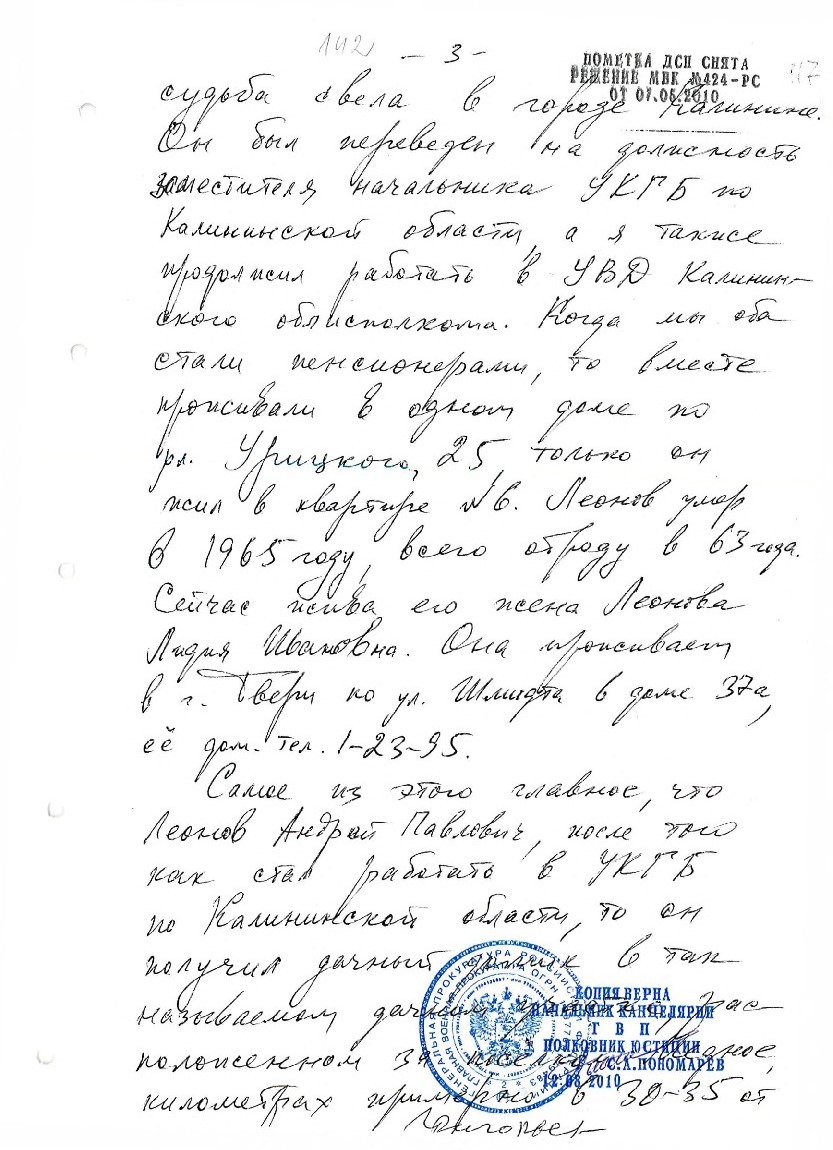 142
- 3 -
ПОМЕТКА ДСП СНЯТА
РЕШЕНИЕ МВК №424-РС
ОТ 07.05.2010
117
судьба свела в городе Калинине.
Он был переведен на должность
заместителя начальника УКГБ по
Калининской области, а я также
продолжил работать в УВД Калинин-
ского облисполкома. Когда мы оба
стали пенсионерами, то вместе
проживали в одном доме по
ул. Урицкого, 25, только он
жил в квартире №6. Леонов умер
в 1965 году, всего отроду в 63 года.
Сейчас жива его жена Леонова
Лидия Ивановна. Она проживает
в г. Твери по ул. Шмидта в доме 37а,
её дом. тел. 1-23-95.
Самое из этого главное, что
Леонов Андрей Павлович, после того
как стал работать в УКГБ
по Калининской области, то он
получил дачный домик в так
называемом дачном рас-
положенном за поселком
километрах примерно в 30-35 от
КОПИЯ ВЕРНА
НАЧАЛЬНИК КАНЦЕЛЯРИИ
Г В П
ПОЛКОВНИК ЮСТИЦИИ
С.А.ПОНОМАРЕВ
12.08.2010